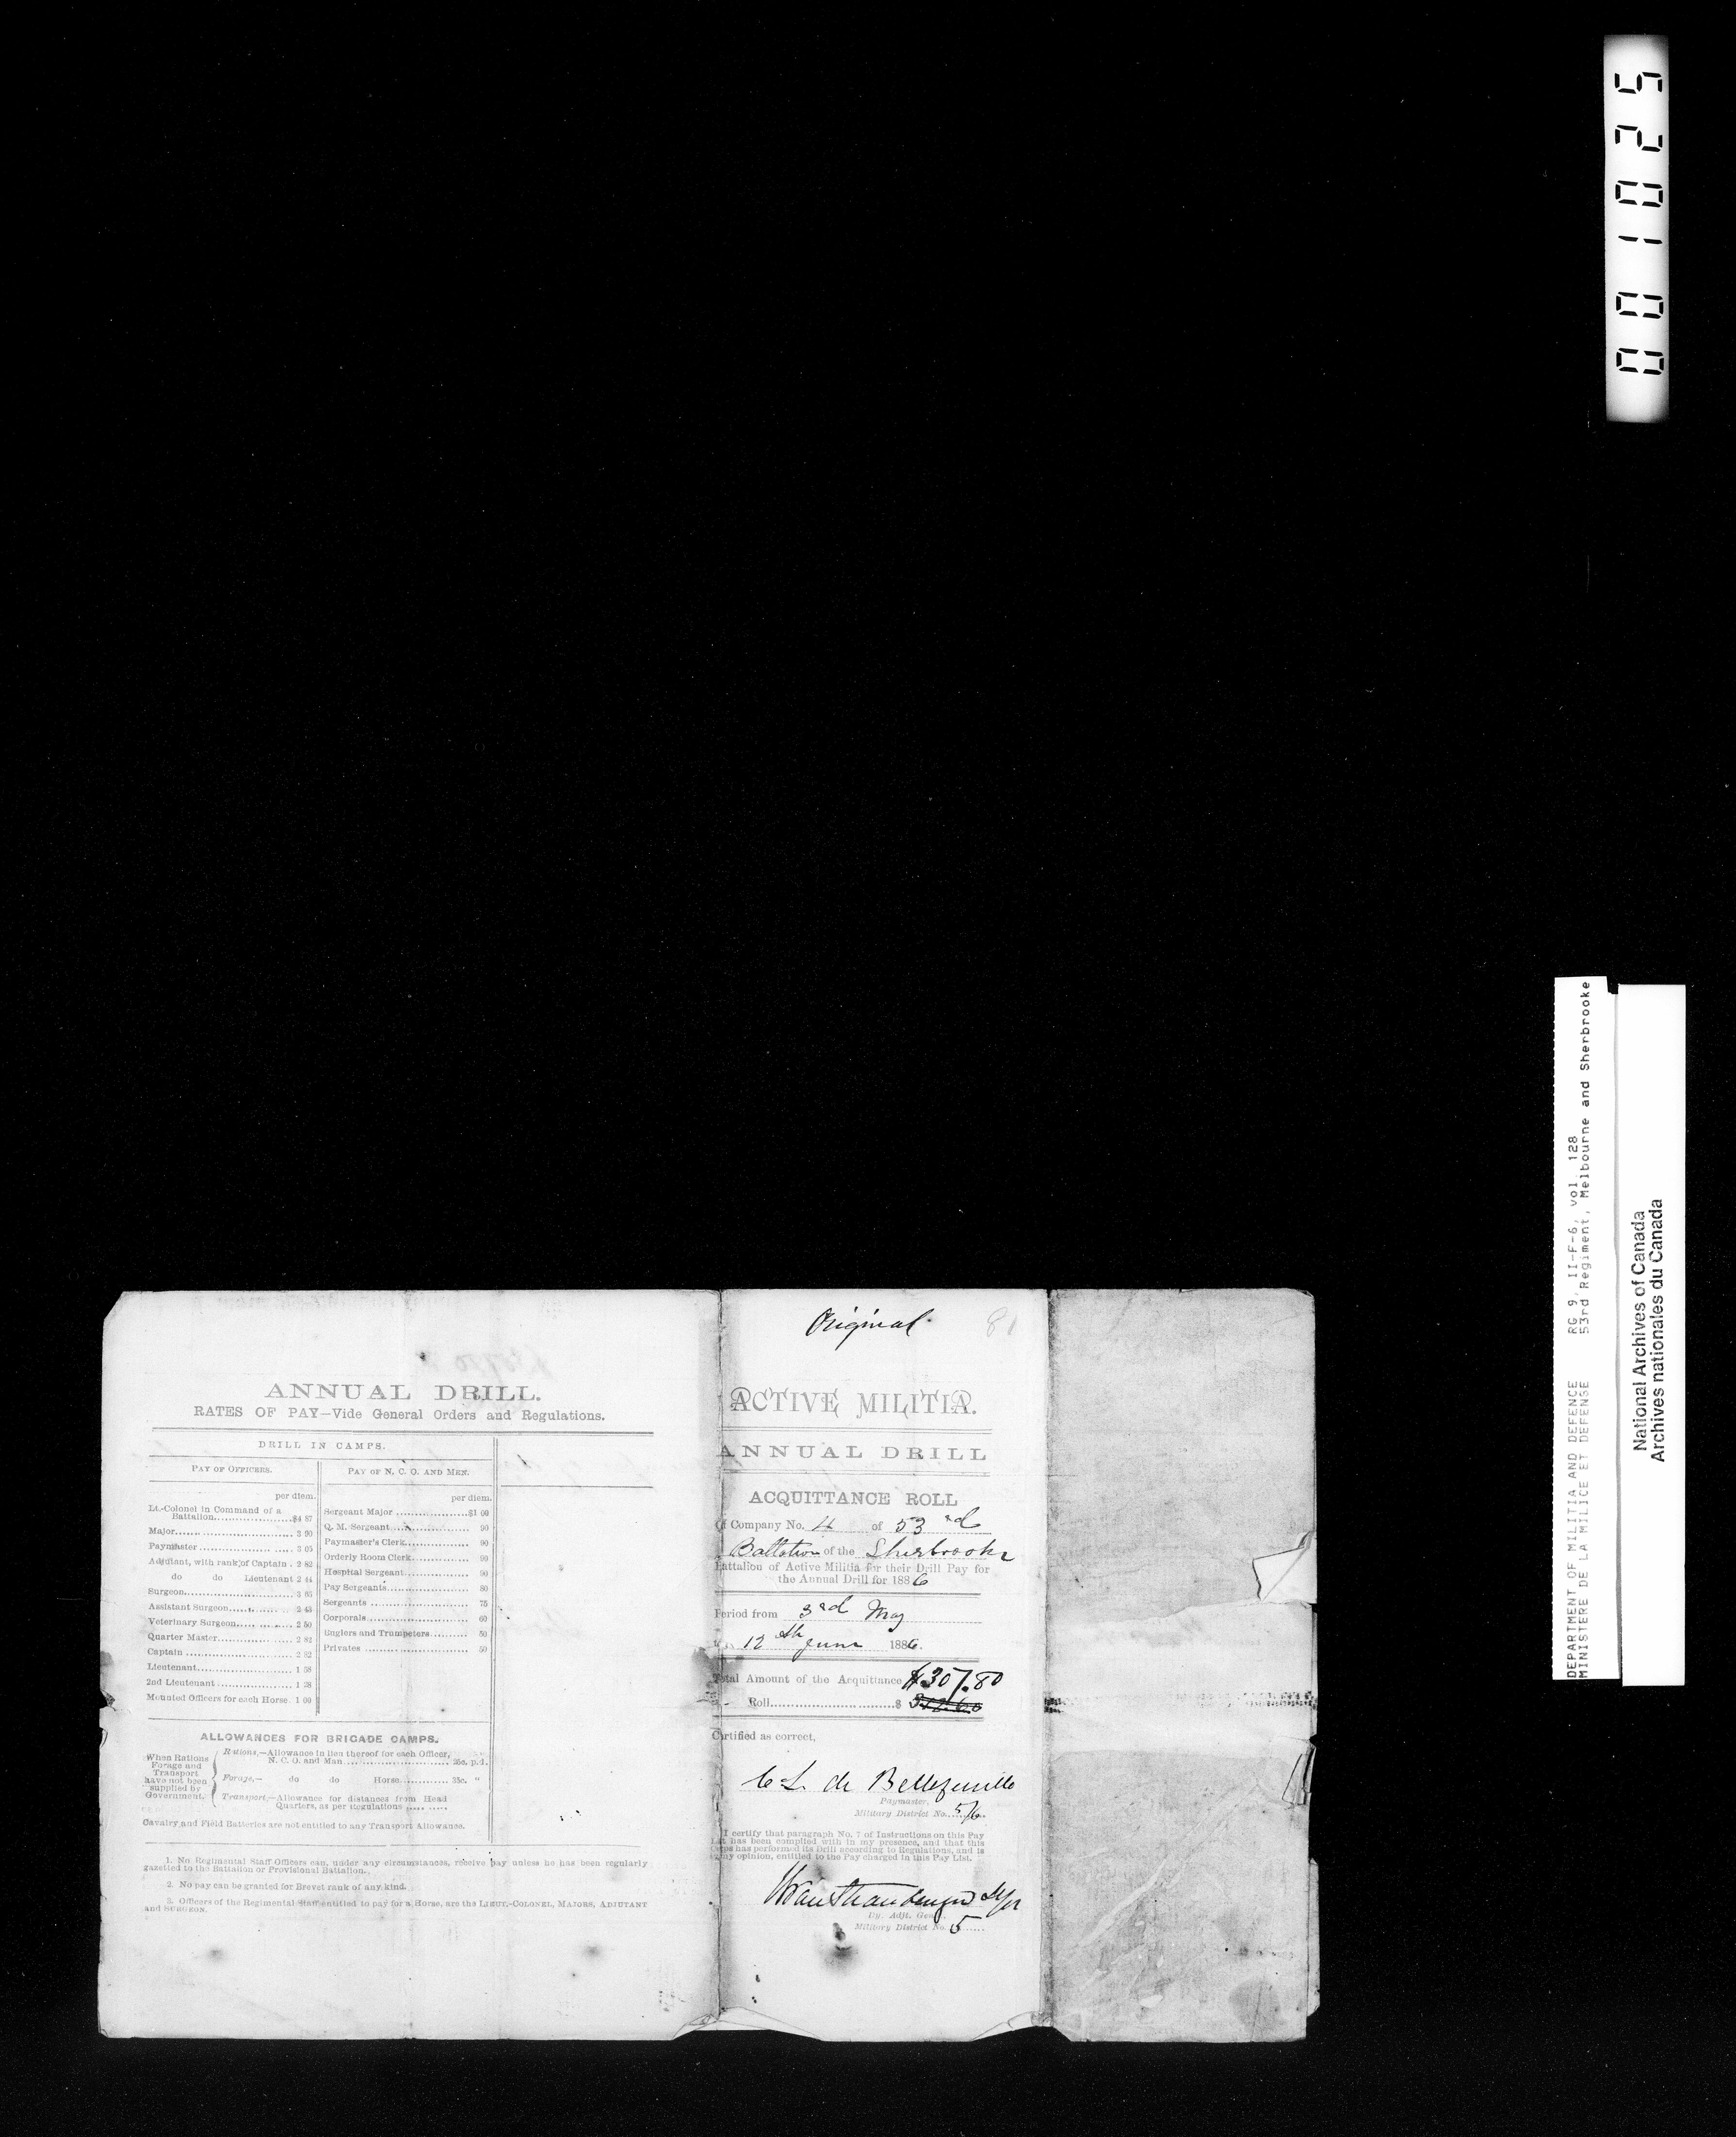 ANNUAL DRILL.
RATES OF PAY—Vide General Orders and Regulations.
DRILL IN CAMPS.
PAY OF OFFICERS.
per diem.
Lt.-Colonel in Command of a
Battalion....................$4 87
Major........ 3 90
Paymaster ................ ..... 3 05
Adjutant, with rank of Captain . 2 82
do do Lieutenant 2 44
Surgeon........................ 3 65
Assistant Surgeon............ 2 43
Veterinary Surgeon............ 2 50
Quarter Master................. 2 82
Captain ........................ 2 82
Lieutenant..................... 1 58
2nd Lieutenant ................. 1 28
Mounted Officers for each Horse. 1 00
PAY OF N. C. O. AND MEN.
per diem.
Sergeant Major ..................$1 00
Q. M. Sergeant .................. 90
Paymaster's Clerk............... 90
Orderly Room Clerk............. 90
Hospital Sergeant............... 90
Pay Sergeants.................... 80
Sergeants ........................ 75
Corporals......................... 60
Buglers and Trumpeters......... 50
Privates .......................... 50
ALLOWANCES FOR BRIGADE CAMPS.
When Rations
Forage and
Transport
have not been
supplied by
Government.
Rations,—Allowance in lieu thereof for each Officer,
N. C. O. and Man.......................... 25c. p.d.
Forage,— do do Horse............ 35c. "
Transport,—Allowance for distances from Head
Quarters, as per Regulations ..... .....
Cavalry and Field Batteries are not entitled to any Transport Allowance.
1. No Regimental Staff Officers can, under any circumstances, receive pay unless he has been regularly
gazetted to the Battalion or Provisional Battalion.
2. No pay can be granted for Brevet rank of any kind.
3. Officers of the Regimental Staff entitled to pay for a Horse, are the LIEUT.-COLONEL, MAJORS, ADJUTANT
and SURGEON.
Original
81
ACTIVE MILITIA.
ANNUAL DRILL
ACQUITTANCE ROLL
Of Company No. 4 of 53rd
Battalion of the Sherbrooke
Battalion of Active Militia for their Drill Pay for
the Annual Drill for 1886
Period from 3rd May
12th June 1886.
Total Amount of the Acquittance $307.80
Roll..............................$
Certified as correct,
Paymaster,
Military District No. 5/6
I certify that paragraph No. 7 of Instructions on this Pay
List has been complied with in my presence, and that this
Corps has performed its Drill according to Regulations, and is
in my opinion, entitled to the Pay charged in this Pay List.
Dy. Adjt. Genl.
Military District No. 5
001025
DEPARTMENT OF MILITIA AND DEFENCE RG 9, II-F-6, vol. 128
MINISTERE DE LA MILICE ET DEFENSE 53rd Regiment, Melbourne and Sherbrooke
National Archives of Canada
Archives nationales du Canada